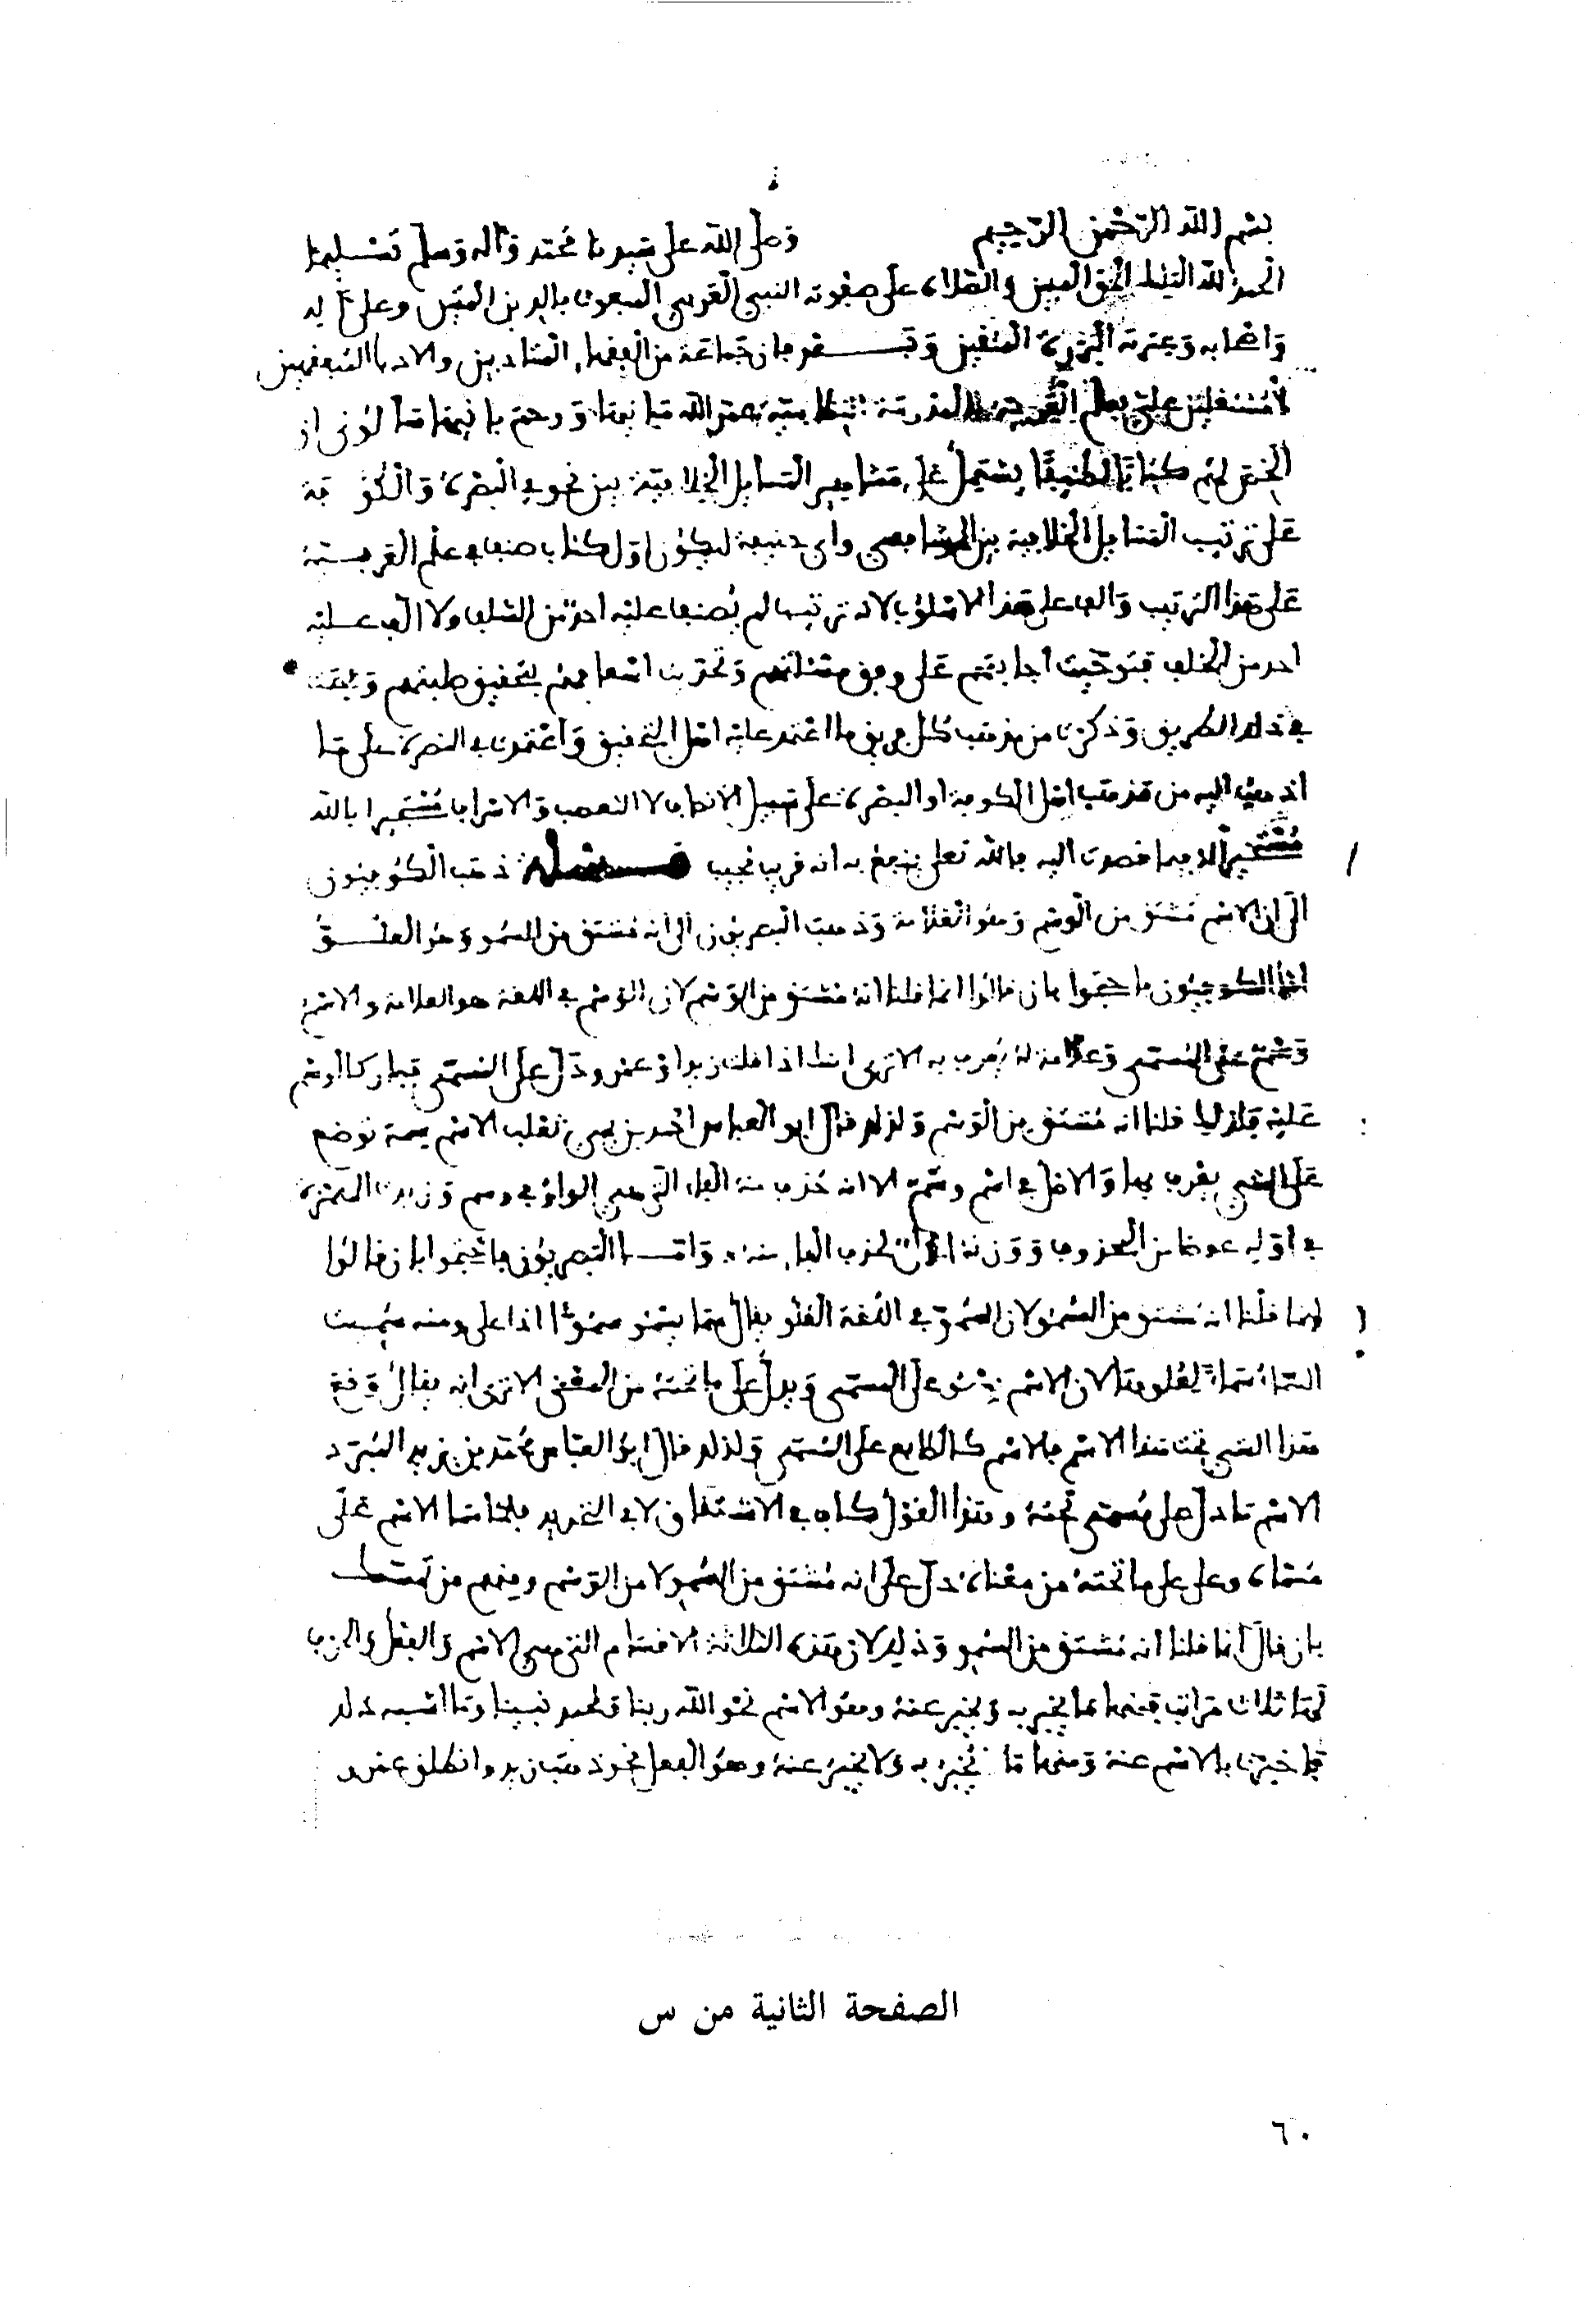 بسم الله الرحمن الرحيم وصلى الله على سيدنا محمد وآله وسلم تسليما
الحمد لله الملك الحق المبين والصلاة على صفوته النبي العربي المبعوث بالدين المتين وعلى آله
وأصحابه وعترته البررة المتقين وبعد فإن جماعة من الفقهاء المتأدبين والادباء المتفقهين
المشتغلين علي بعلم العربية بالمدرسة النظامية عمر الله مبانيها ورحم بانيها سألوني أن
ألخص لهم كتابا لطيفا يشتمل على مشاهير المسايل الخلافية بين نحويي البصرة والكوفة
على ترتيب المسايل الخلافية بين الشافعي وابي حنيفة ليكون اول كتاب صنف في علم العربية
على هذا الترتيب والف على هذا الاسلوب لانه ترتيب لم يصنف عليه احد من السلف ولا الف عليه
احد من الخلف فتوخيت اجابتهم على وفق مسئلتهم وتحريت اسعافهم بتحقيق طلبتهم
في ذلك الطريق وذكرت من مذهب كل فريق ما اعتمد عليه اهل التحقيق واعتمدت في النصرة على ما
اذهب اليه من مذهب اهل الكوفة او البصرة على سبيل الانصاف لا التعصب والاسراف مستجيرا بالله
مستخيرا له فيما قصدت اليه فالله تعلى ينفع به انه قريب مجيب مسئلة ذهب الكوفيون
الى ان الاسم مشتق من الوسم وهو العلامة وذهب البصريون الى انه مشتق من السمو وهو العلو
اما الكوفيون فاحتجوا بان قالوا انما قلنا انه مشتق من الوسم لان الوسم في اللغة هو العلامة والاسم
وسم على المسمى وعلامة له يعرف به الا ترى انك اذا قلت زيد او عمرو دل على المسمى فصار كالوسم
عليه فلذلك قلنا انه مشتق من الوسم ولذلك قال ابو العباس احمد بن يحيى ثعلب الاسم سمة توضع
على الشي يعرف بها والاصل في اسم وسم الا انه حذف منه الفاء التي هي الواو في وسم وزيدت الهمزة
في اوله عوضا من المحذوف ووزنه اعل لحذف الفاء منه واما البصريون فاحتجوا بان قالوا
انما قلنا انه مشتق من السمو لان السمو في اللغة العلو يقال سما يسمو سموا اذا على ومنه سميت
السماء سماء لعلوها لان الاسم يسمو على المسمى ويدل على ما تحته من المعنى الا ترى انه يقال وقع
هذا الشي تحت هذا الاسم فالاسم كالطابع على المسمى ولذلك قال ابو العباس محمد بن يزيد المبرد
الاسم ما دل على مسمى تحته وهذا القول كاف في الاشتقاق لا في التحديد فلما سما الاسم على
مسماه وعلى على ما تحته من معناه دل على انه مشتق من السمو لا من الوسم ومنهم من تمسك
بان قال انما قلنا انه مشتق من السمو وذلك لان هذه الثلاثة الاقسام التي هي الاسم والفعل والحرف
لها ثلاث مراتب فمنها ما يخبر به ويخبر عنه وهو الاسم نحو الله ربنا ومحمد نبينا وما اشبه ذلك
فاخبرت بالاسم عنه ومنها ما يخبر به ولا يخبر عنه وهو الفعل نحو ذهب زيد وانطلق عمرو
الصفحة الثانية من س
٦٠